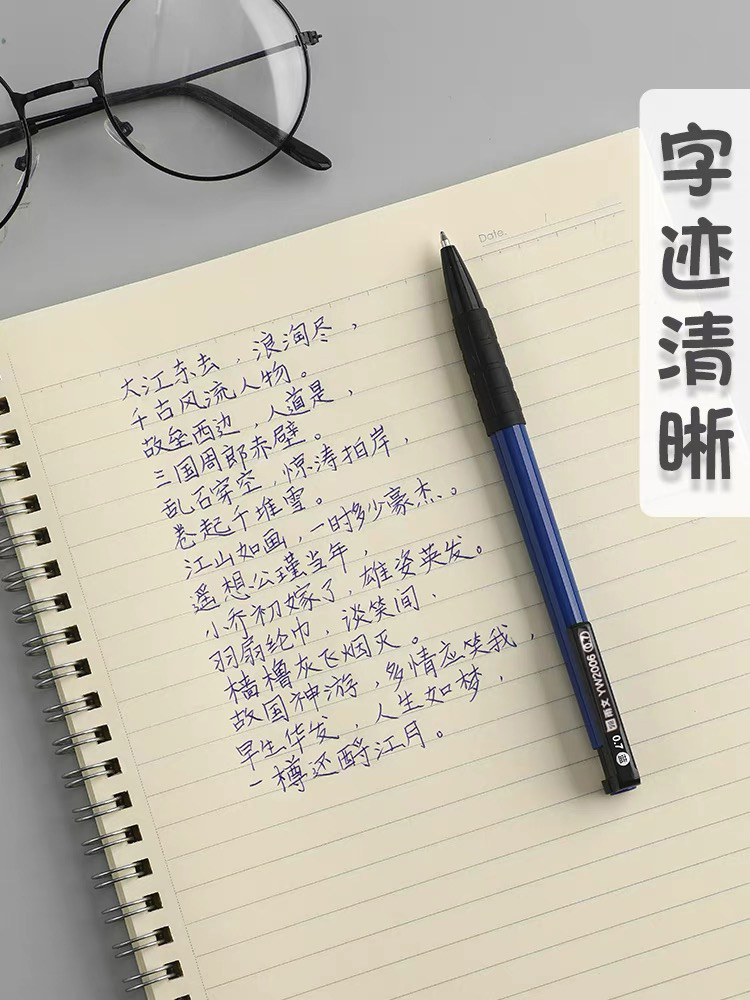 字迹清晰
Date.
大江东去，浪淘尽，
千古风流人物。
故垒西边，人道是，
三国周郎赤壁。
乱石穿空，惊涛拍岸，
卷起千堆雪。
江山如画，一时多少豪杰。
遥想公瑾当年，
小乔初嫁了，雄姿英发。
羽扇纶巾，谈笑间，
樯橹灰飞烟灭。
故国神游，多情应笑我，
早生华发，人生如梦，
一樽还酹江月。
雨文 YW2006 0.7
0.7 蓝